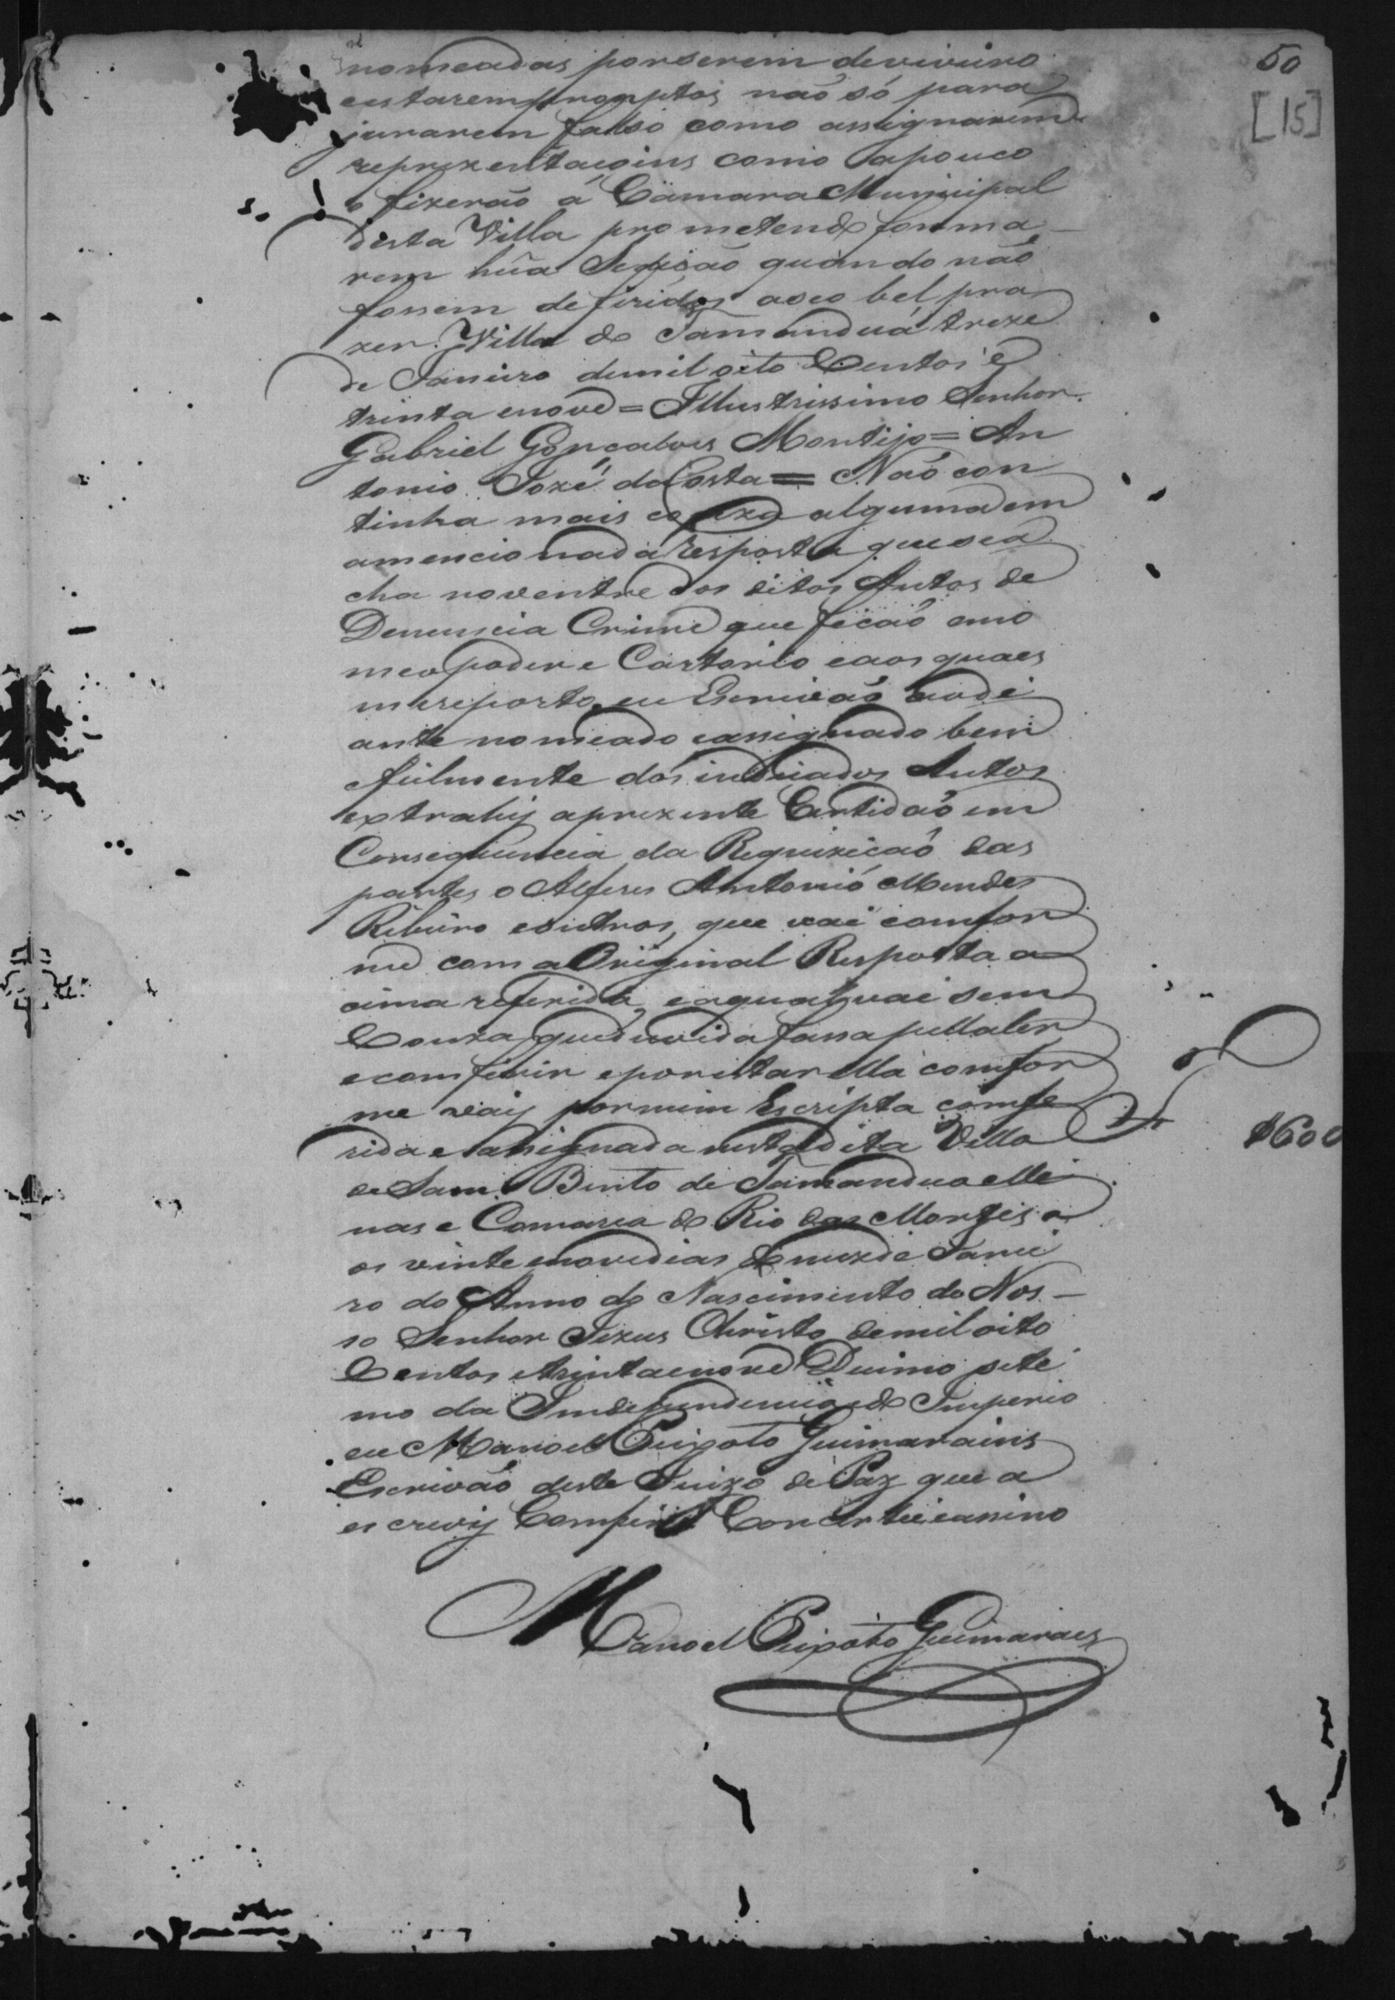 50
[15]
nomeadas por serem de viveiro
eestarem promptos não só para
jurarem falso como assignarem
reprezentaçoins como apouco
o fizerão á Camara Municipal
desta Villa prometendo forma-
rem hũa Sedisão quando não
fossem deferidos aseo bel pra
zer. Villa de Tamanduá treze
de Janeiro demil oito Centos e
trinta enove = Illustrissimo Senhor
Gabriel Gonçalves Montijo = An
tonio Jozé da Costa = Não con
tinha mais couza alguma em
amencionada resposta que sea
cha noventre dos ditos Autos de
Denuncia Crime que ficão emo
meo poder e Cartorio eaos quaes
mereporto, eu Escrivão aodi
ante nomeado eassignado bem
fielmente dos indiciados Autos
extrahij aprezente Certidão em
Consequencia da Requizicão das
partes o Alferes Antonio Mendes
Ribeiro eoutros, que vai comfor
me com a Original Resposta a
cima referida, eaqual vai sem
Couza que duvida fassa pella ler
ecomferir eporestar ella comfor
me vaij pormim Escripta comfe
rida e assignada nesta dita Villa
de Sam Bento de Tamandua Mi
nas e Comarca do Rio das Mortes a
os vinte enove dias do mez de Janei
ro do Anno do Nascimento de Nos-
so Senhor Jezus Christo demil oito
Centos etrinta enove Decimo seti
mo da Independencia e do Imperio
eu Manoel Peixoto Guimarains
Escrivão deste Juizo de Paz que a
escrevij Comferi Concertei eassino
$600
Manoel Peixoto Guimaraes